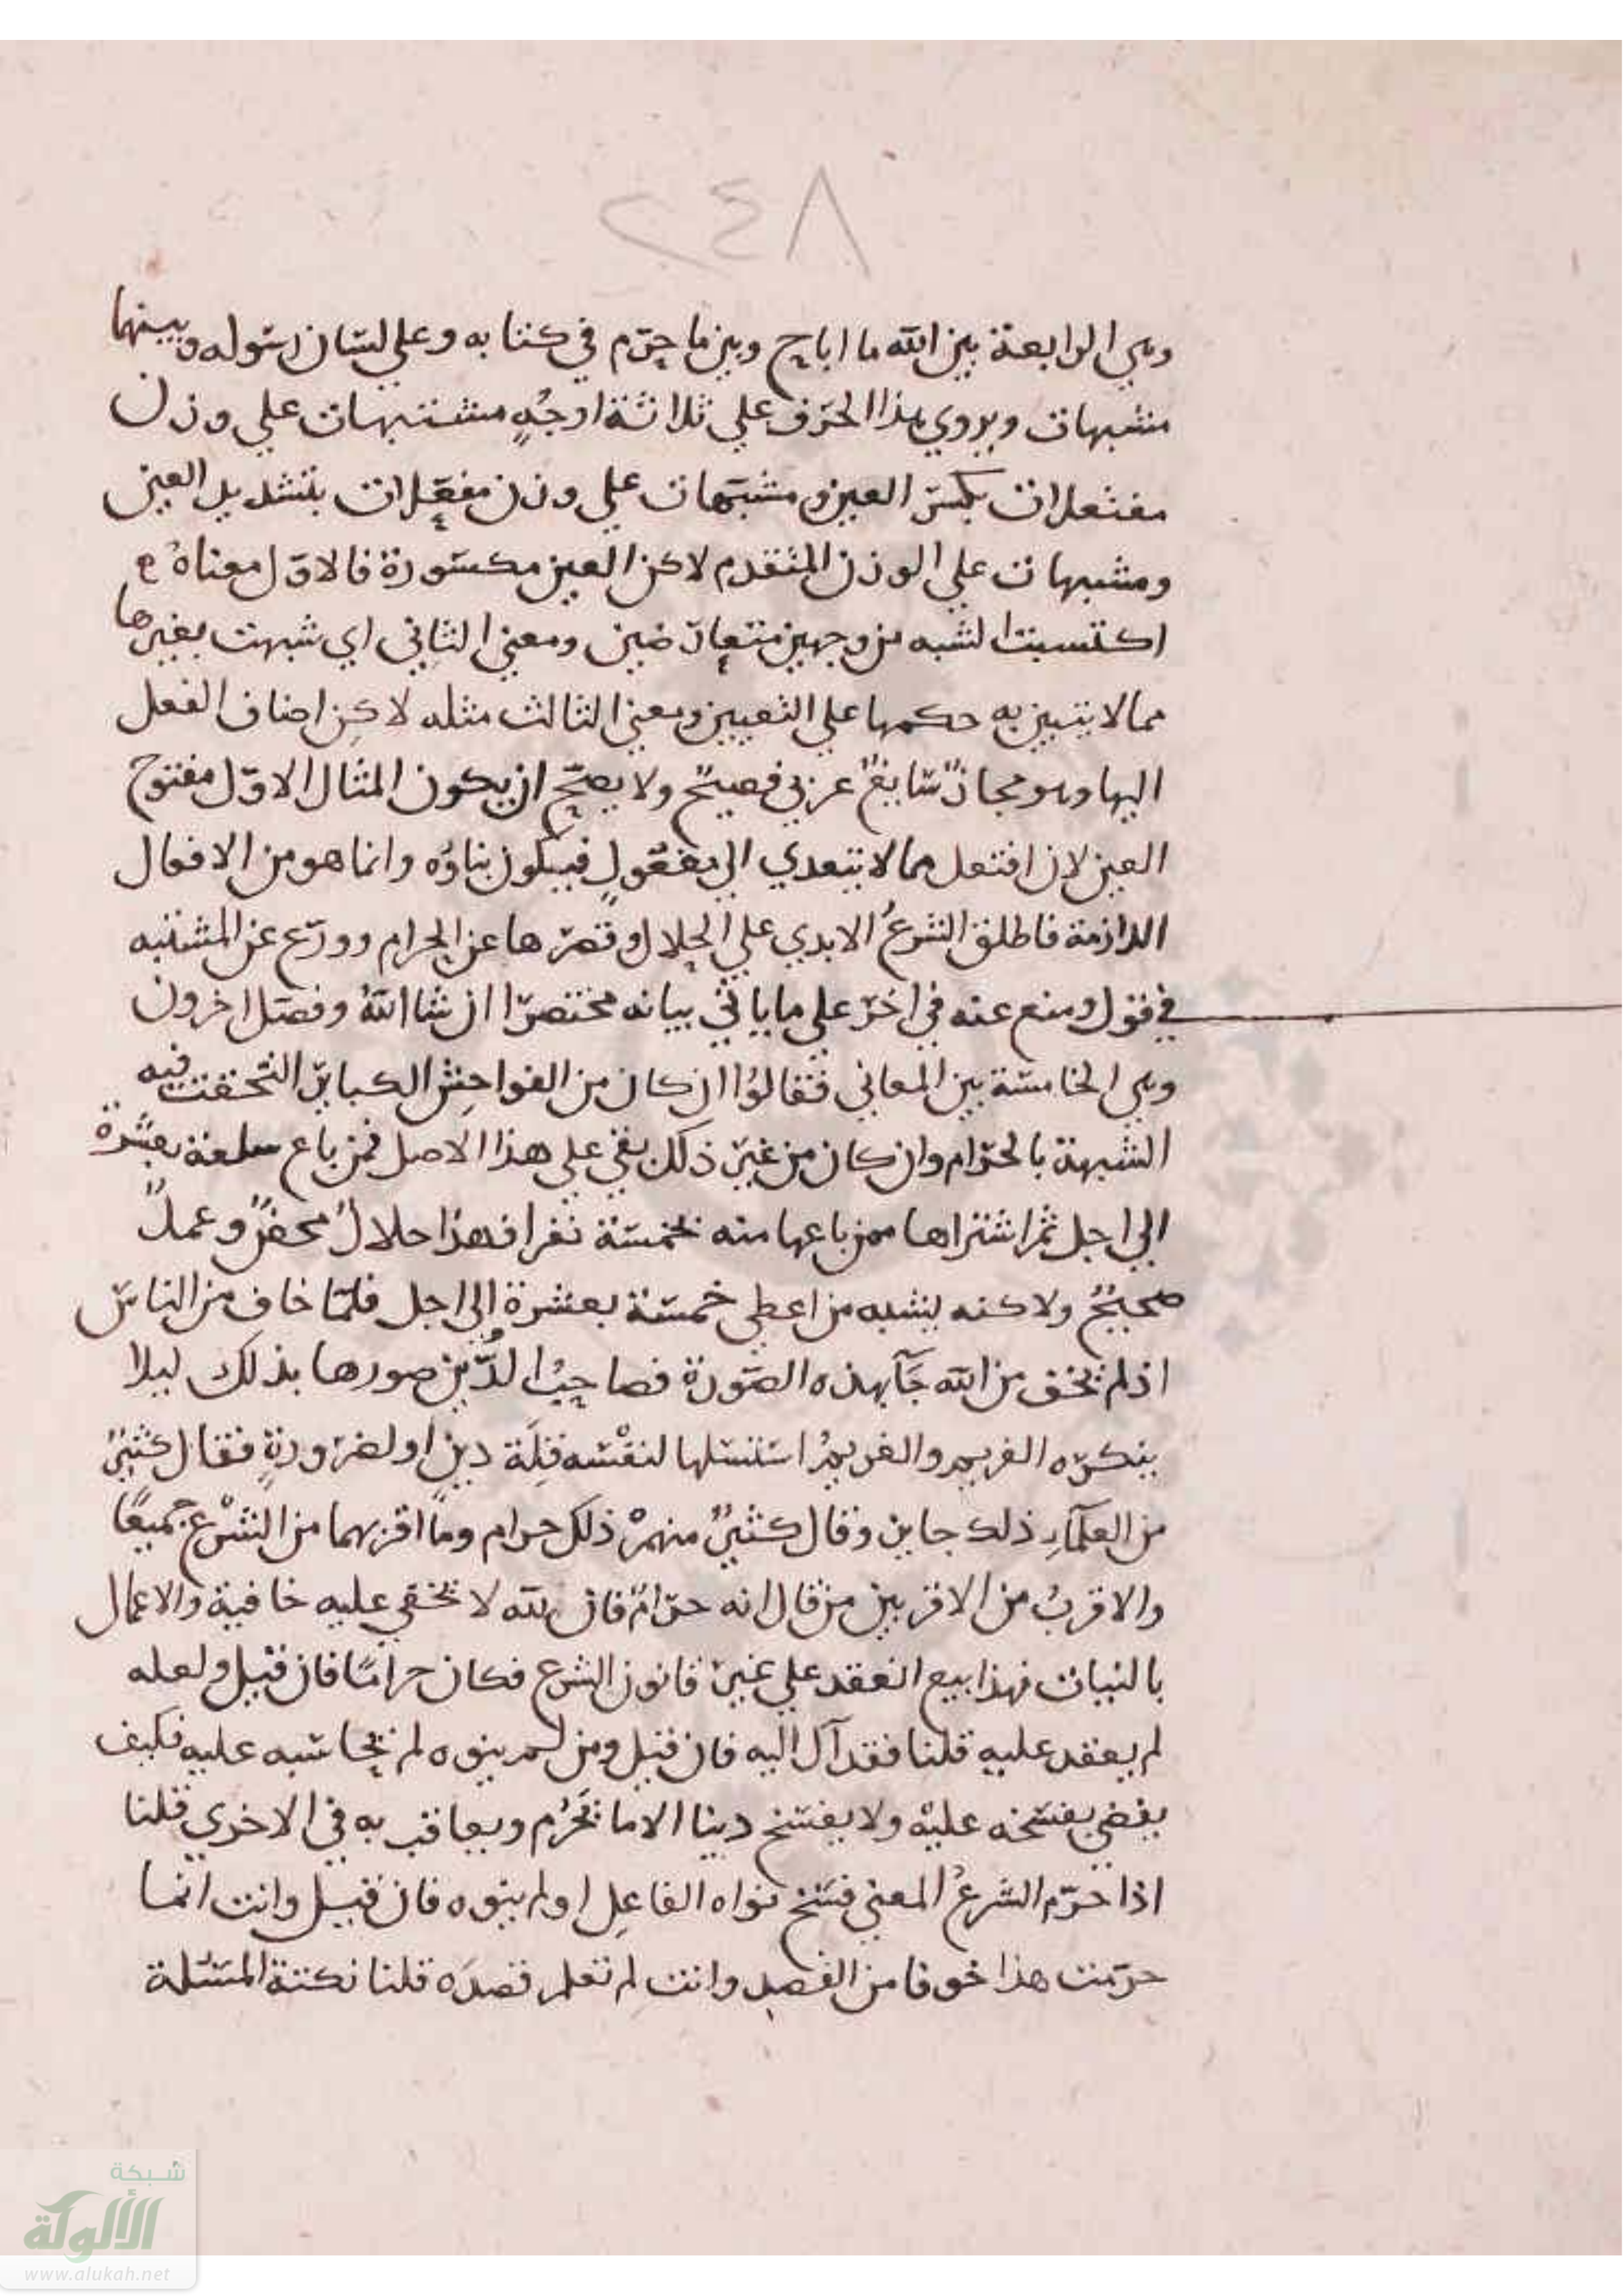 ٢٤٨
وهي الرابعة بين الله ما اباح وبين ما حرّم في كتابه وعلي لسان رسوله وبينهما
مشبهات ويروي هذا الحرف علي ثلاثة اوجُهٍ مشتبهات علي وزن
مفتعلات بكسر العين ومشبّهات علي وزن مفعّلات بتشديد العين
ومشبهات علي الوزن المتقدم لاكن العين مكسورة فالاوّل معناهُ
اكتسبت الشبه من وجهين متعارضين ومعني الثاني اي شبهت بغيرها
مما لا يتبين به حكمها علي التعيين ومعني الثالث مثله لاكِن اضاف الفعل
اليها وهو مجازٌ سايغٌ عربي فصيحٌ ولا يصحّ ان يكون المثال الاوّل مفتوح
العين لان افتعل مما لا يتعدي الي مفعُولٍ فيكون بناوُه وانما هو من الافعال
اللازمة فاطلق الشرعُ الايدي علي الحلال وقصرها عن الحرام وورّع عن المشتبه
في قول ومنع عنه في اخر علي ما ياتي بيانه مختصرًا ان شا اللهُ وفصل اخرون
وهي الخامسة بين المعاني فقالوُا ان كان من الفواحش الكباير التحقت فيه
الشبهة بالحرام وان كان من غير ذلك بقي علي هذا الاصل فمن باع سلعة بعشرة
الي اجل ثم اشتراها ممن باعها منه بخمسة نقدا فهذا حلالٌ محضٌ وعملٌ
صحيحٌ ولاكنه يشبه من اعطي خمسة بعشرة الي اجل فلمّا خاف من الناس
اذ لم يخف من الله جَآ بهذه الصّورة فصاحبُ الدَّين صورها بذلك ليلا
ينكره الغريم والغريمُ استسهلها لنفْسه قِلّة دينٍ او لضرورةٍ فقال كثيرٌ
من العلمآءِ ذلك جايز وقال كثيرٌ منهمْ ذلك حرام وما اقربهما من الشرْع جميعًا
والاقربُ من الاقربين من قال انه حرامٌ فان الله لا تخفي عليه خافية والاعمال
بالنيات فهذا بيع انعقد علي غير قانون الشرع فكان حرامًا فان قيل ولعله
لم يعقد عليه قلنا فقد آل اليه فان قيل ومن لم ينوه لم يحاسَبه عليه فكيف
يقضي بفسخه عليْه ولا يفسَخ دينا الا ما يَحْرُم ويعاقب به في الاخري قلنا
اذا حرّم الشرعُ المعني فسَخ نواه الفاعِل او لم ينوه فان قيل وانت انما
حرّمت هذا خوفا من القصد وانت لم تعلم قصدَه قلنا نكتة المسئلة
شبكة
الألوكة
www.alukah.net